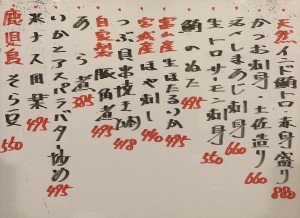 天然インド鮪トロ・赤身盛り 880
かつお刺身・土佐造り 660
活〆しまあじ刺身 660
生トロサーモン刺身 550
鮪のぬた 495
富山産 生ほたるいか 495
宮城産 ほや刺し 440
つぶ貝串焼 418
自家製 豚角煮 495
あら煮 385
いかとアスパラバター炒め 495
米ナス田楽 495
鹿児島 そら豆 550